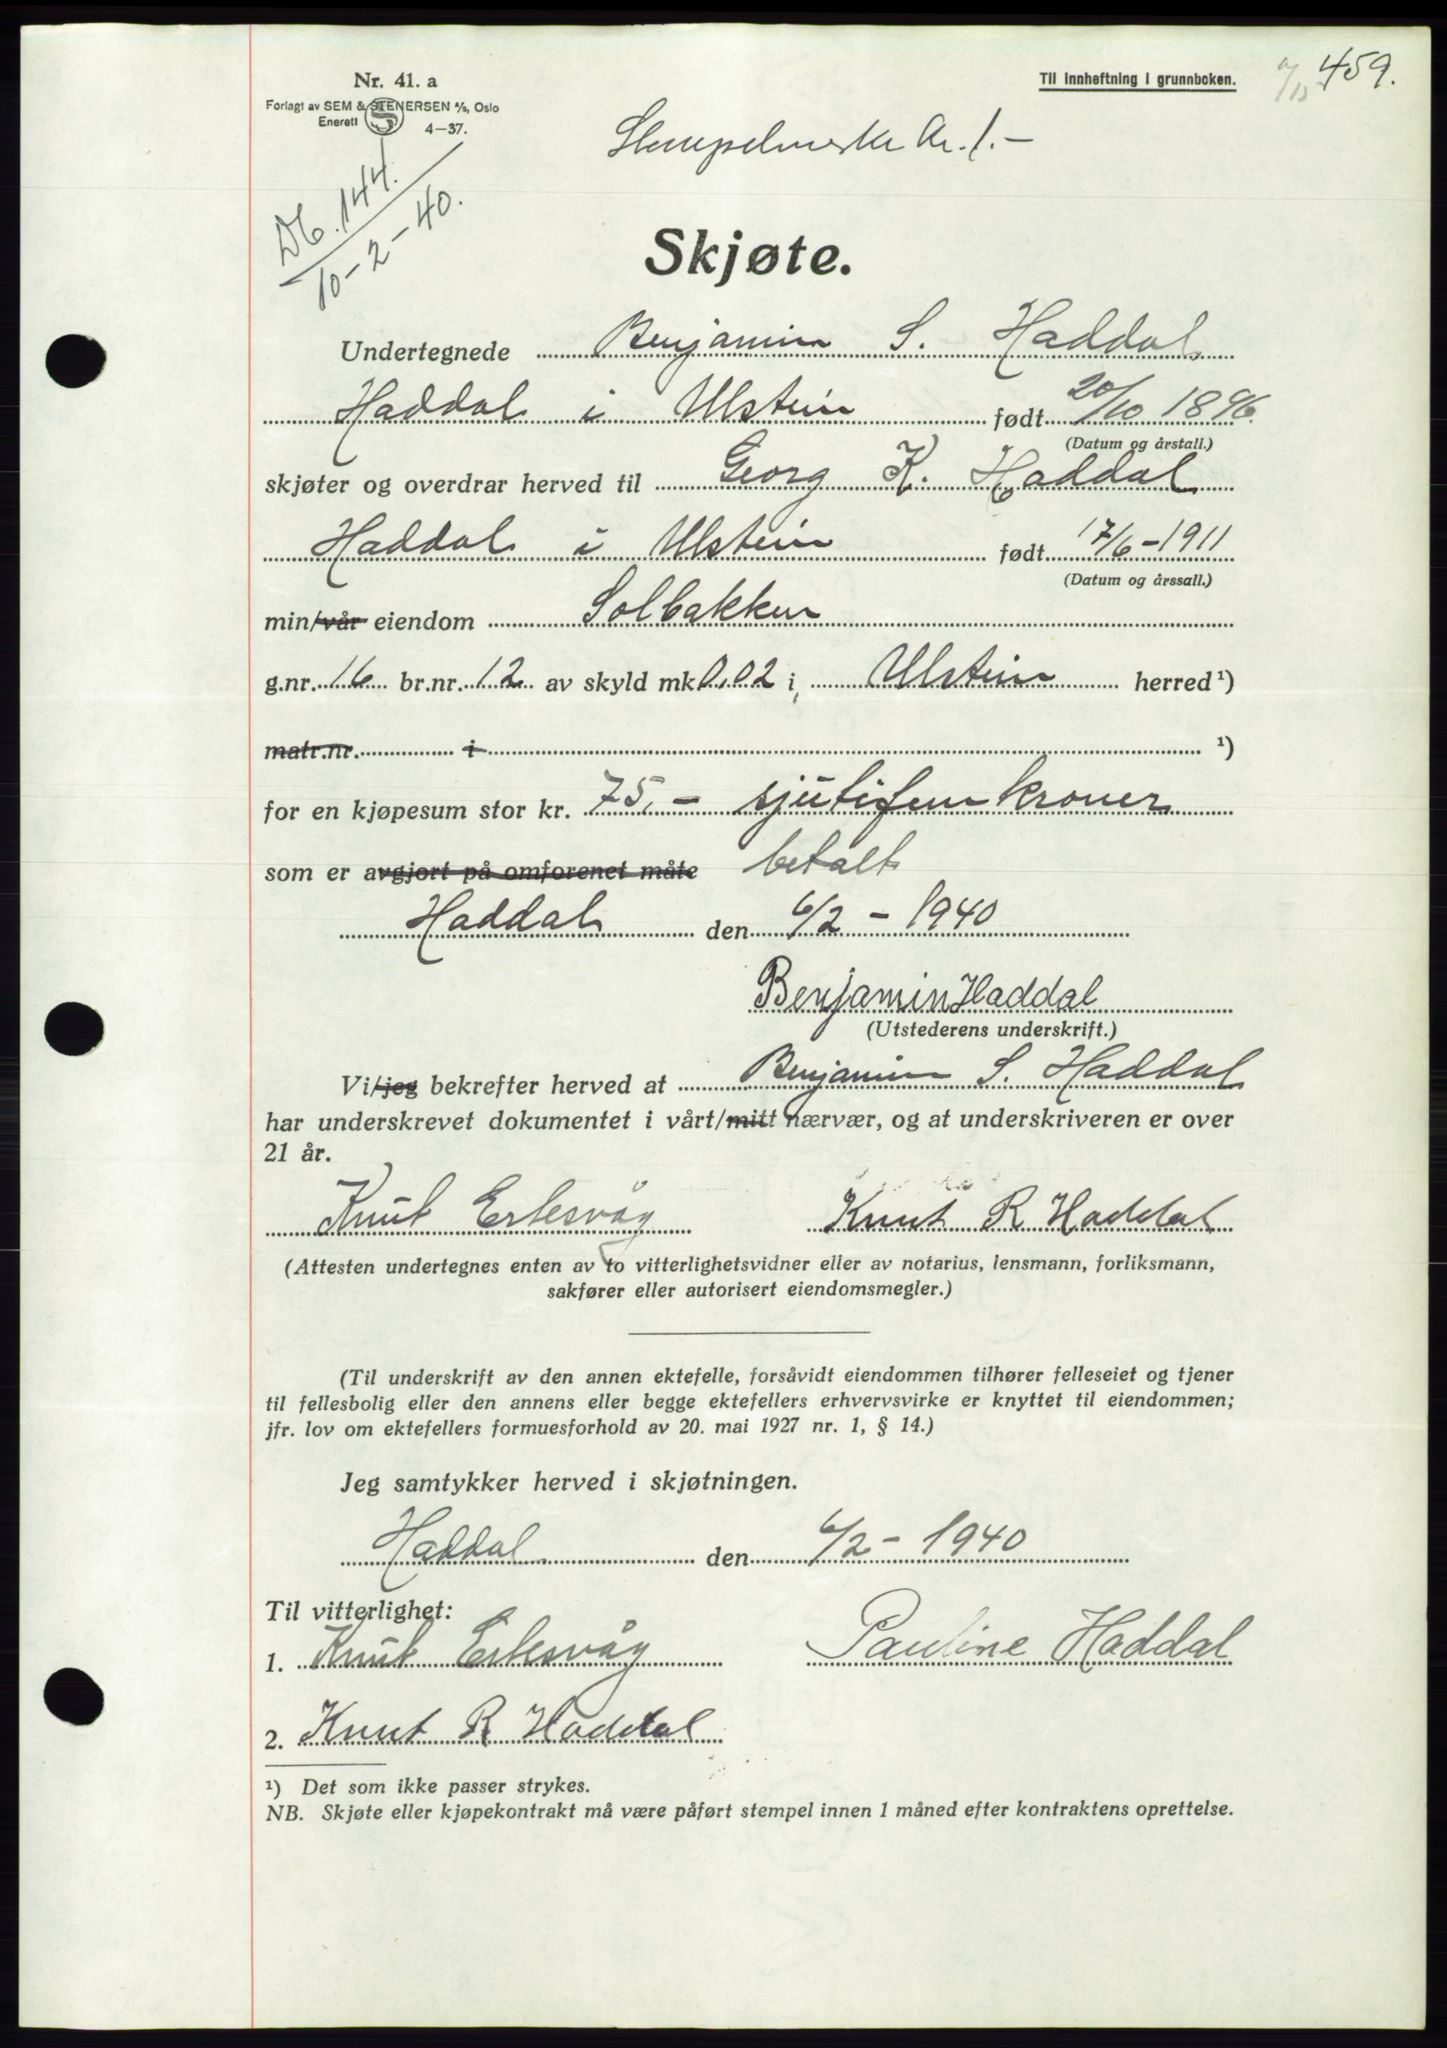 Nr. 41. a
Forlagt av SEM & STENERSEN A/S, Oslo
Enerett
4—37.
Til innheftning i grunnboken.
459.
Stempelmerke kr. 1.—
Db. 144.
10-2-40.
Skjøte.
Undertegnede Benjamin S. Haddal
Haddal i Ulstein født 20/10 1896.
(Datum og årstall.)
skjøter og overdrar herved til Georg K. Haddal
Haddal i Ulstein født 17/6-1911
(Datum og årssall.)
min/vår eiendom Solbakken
g.nr. 16 br.nr. 12 av skyld mk 0,02 i Ulstein herred ¹)
matr.nr. i ¹)
for en kjøpesum stor kr. 75,- sjutifem kroner
som er avgjort på omforenet måte betalt
Haddal den 6/2 - 1940
Benjamin Haddal
(Utstederens underskrift.)
Vi/jeg bekrefter herved at Benjamin S. Haddal
har underskrevet dokumentet i vårt/mitt nærvær, og at underskriveren er over
21 år.
Knut Ertesvåg Knut R Haddal
(Attesten undertegnes enten av to vitterlighetsvidner eller av notarius, lensmann, forliksmann,
sakfører eller autorisert eiendomsmegler.)
(Til underskrift av den annen ektefelle, forsåvidt eiendommen tilhører felleseiet og tjener
til fellesbolig eller den annens eller begge ektefellers erhvervsvirke er knyttet til eiendommen;
jfr. lov om ektefellers formuesforhold av 20. mai 1927 nr. 1, § 14.)
Jeg samtykker herved i skjøtningen.
Haddal den 6/2 - 1940
Til vitterlighet:
1. Knut Ertesvåg Pauline Haddal
2. Knut R Haddal
¹) Det som ikke passer strykes.
NB. Skjøte eller kjøpekontrakt må være påført stempel innen 1 måned efter kontraktens oprettelse.